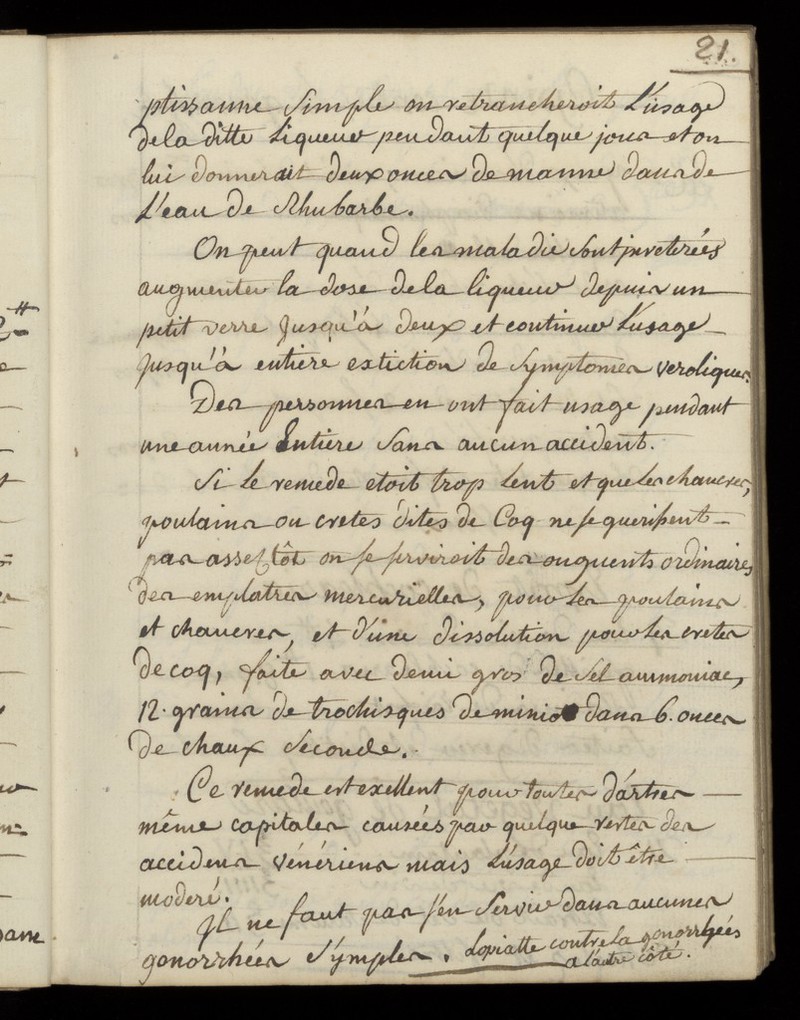 21.
ptissanne simple on retrancheroit L'usage
dela ditte Liqueur pendant quelque jour et on
lui donnerait deux onces de manne dans de
L'eau de Rhubarbe.
On peut quand les maladie sont inveterées
augmenter la dose dela liqueur depuis un
petit verre jusqu'à deux et continuer L'usage
jusqu'à entiere extiction de symptomes veroliques.
Des personnes en ont fait usage pendant
une année Entiere sans aucun accident.
Si Le remede etoit trop Lent et que les chancres,
poulains ou cretes dites de Coq ne se guerissent
pas assez tôt on se serviroit des onguents ordinaires
des emplatres mercurielles, pour Les poulains
et chancres, et d'une dissolution pour Les cretes
de coq, faite avec demi gros de Sel ammoniac,
12. grains de trochisques de minio dans 6. onces
de chaux seconde.
Ce remede est exellent pour toutes dártres
même capitales causées par quelque restes des
accidens vénériens mais L'usage doit être
moderé.
Il ne faut pas s'en servir dans aucunes
gonorrhées Symples. Lopiatte contre La gonorrheés
a l'autre côté.